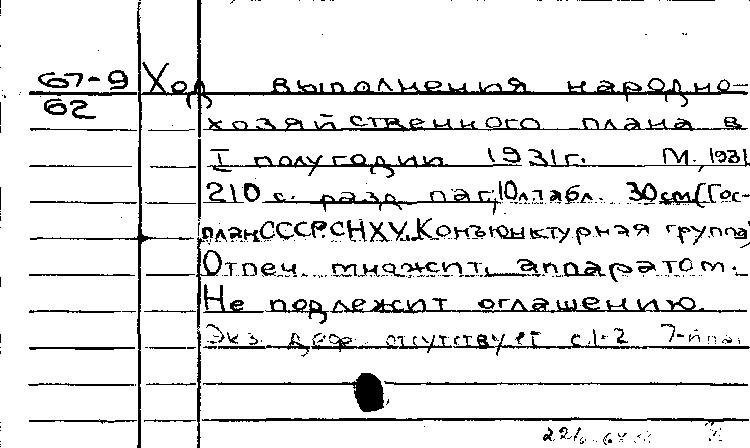 67-9 Ход выполнения народно-
62
хозяйственного плана в
I полугодии 1931г. М., 1931
210 с. разд. паг., 10л табл. 30см (Гос-
план СССР. СНХУ. Конъюнктурная группа)
Отпеч. множит. аппаратом.
Не подлежит оглашению.
Экз. деф. отсутствует с. 1-2 7-й паг.